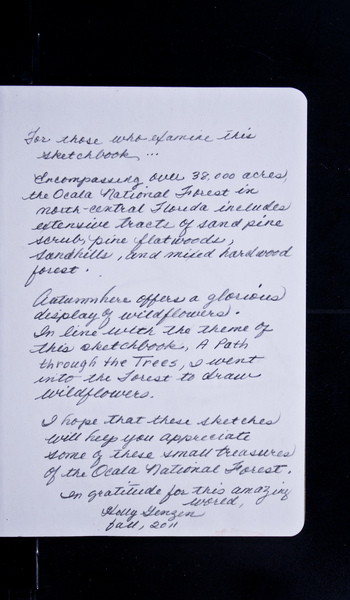 For those who examine this
sketchbook...
Encompassing over 38,000 acres,
the Ocala National Forest in
north-central Florida includes
extensive tracts of sand pine
scrub, pine flatwoods,
sandhills, and mixed hardwood
forest.
Autumn here offers a glorious
display of wildflowers.
In line with the theme of
this sketchbook, A Path
through the Trees, I went
into the Forest to draw
wildflowers.
I hope that these sketches
will help you appreciate
some of these small treasures
of the Ocala National Forest.
In gratitude for this amazing
world,
Holly
fall, 2011